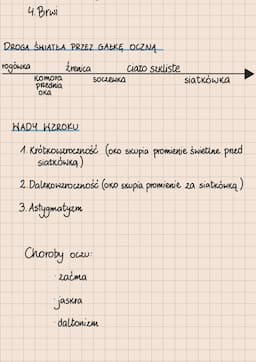 4. Brwi
DROGA ŚWIATŁA PRZEZ GAŁKĘ OCZNĄ
rogówka źrenica ciało szkliste
komora przednia oka soczewka siatkówka
WADY WZROKU
1. Krótkowzroczność (oko skupia promienie świetlne przed
siatkówką)
2. Dalekowzroczność (oko skupia promienie za siatkówką)
3. Astygmatyzm
Choroby oczu:
- zaćma
- jaskra
- daltonizm